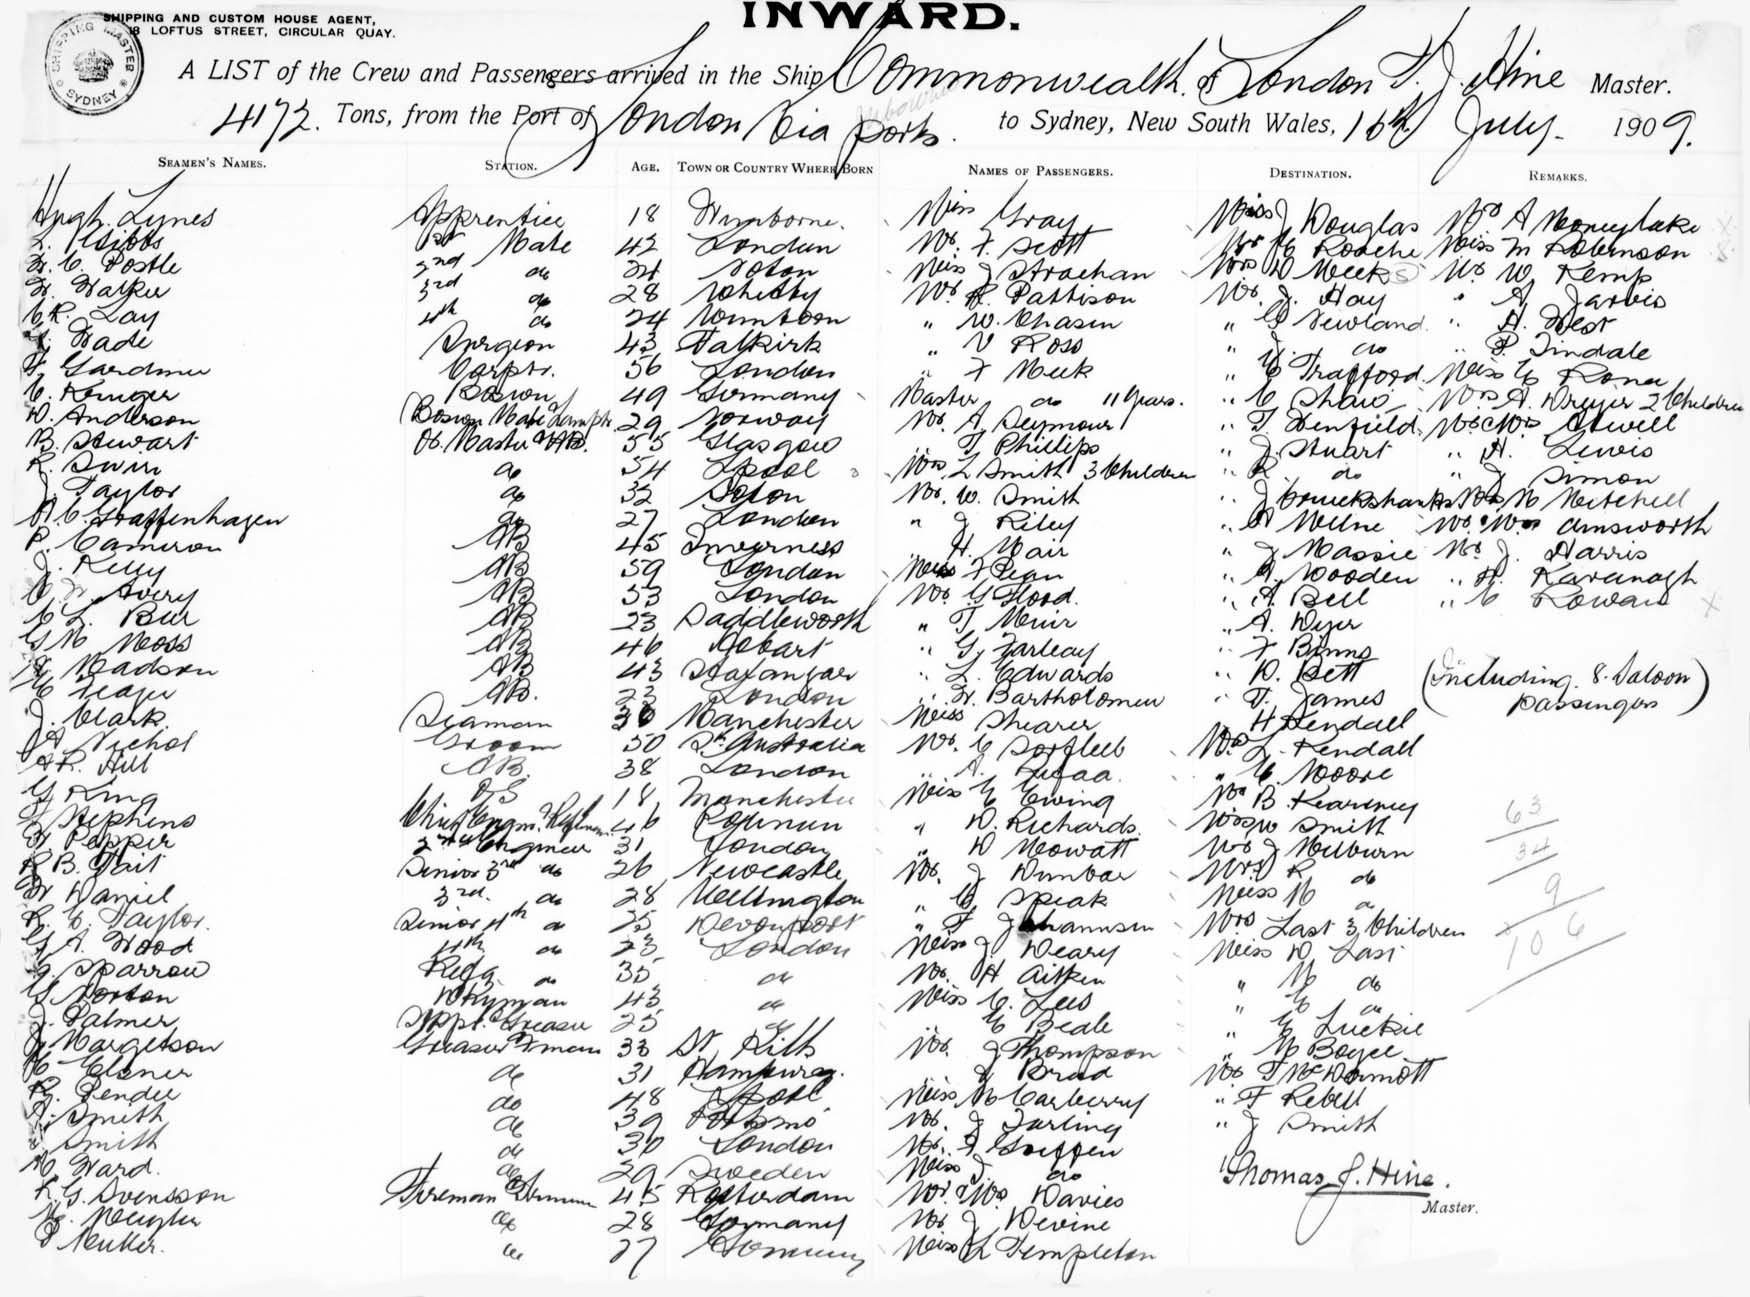 SHIPPING AND CUSTOM HOUSE AGENT,
LOFTUS STREET, CIRCULAR QUAY.
INWARD.
SHIPPING MASTER SYDNEY
A LIST of the Crew and Passengers arrived in the Ship Commonwealth of London T. J. Hine Master.
4172. Tons, from the Port of London Via ports. to Sydney, New South Wales, 16th July 1909.
SEAMEN'S NAMES. STATION. AGE. TOWN OR COUNTRY WHERE BORN NAMES OF PASSENGERS. DESTINATION. REMARKS.
Hugh Lynes Apprentice 18 Wimborne. Miss Gray Miss J Douglas Mrs A Moneylake
Gibbs 1st Mate 42 London Mr. F. Scott Roache Miss M Robinson
Postle 2nd do Soton Miss J Strachan Mrs D Meek Mr W. Kemp
Walker 3rd do 28 Whitby Mr. Pattison Mr. J. Hay " A Jarvis
Lay 4th do 24 " W. Chasin " G Newland " A. West
Wade Surgeon 43 Falkirk " V Ross " J. do " Tindale
Gardiner Carptr. 56 London " F Meek " C Trafford Miss
C. Kruger Bosun 49 Germany Master do 11 years. " C Shaw Mrs A. Dreyer 2 Children
D. Anderson 29 Norway Mr. A Seymour " T Denfield Mr & Mrs
B. Stewart 55 Glasgow " T Phillips " J. Stuart " H. Lewis
R. do 54 Lpool Mrs L Smith 3 Children " R. do " J Simon
J. Taylor do 32 Soton Mr. W. Smith " J Cruickshank Mrs M Mitchell
Graffenhagen do 27 London " J Riley " A Milne Mr & Mrs Ainsworth
P. Cameron AB 45 Inverness " H. Mair " J Massie Mr J. Harris
J. Kelly AB 59 London Miss F " A. Wooden " H. Kavanagh
Avery AB 53 London Mr. G Flood. " A. Bell " C Rowan
C L. Burr AB 23 Saddleworth " T Muir " A. Dyer
G M Moss AB 46 Hobart " G. Farleay " F Binns
Madson AB 43 Stavanger " L. Edwards " D. Bett (Including 8 Saloon
AB. 23 London " W. Bartholomew " T. James passengers)
J. Clark. Seaman 36 Manchester Miss Shearer H Kendall
Nichol Groom 50 Sth Australia Mr. C Mrs L. Kendall
Hill AB. 38 London " A. " C. Moore
G King OS 18 Manchester Miss E Ewing Mr B. Kearsney 63
Stephens 46 " D. Richards. Mrs W Smith
Pepper 2nd Engineer 31 London " D Mowatt Mr J Milburn 34
R B. Tait Senior 3rd do 26 Newcastle Mr. J Dunbar Mrs R do
Daniel 3rd. do 28 Wellington " G Speak Miss M do 9
Taylor. Senior 4th do 25 Devonport " F Johannsen Mrs Last 3 Children
Wood 4th do 23 London Miss J. Deary Miss D. Last 106
Sparrow Refg. do 35 do Mr. H Aitken " M do
G Norton Dkyman 43 do Miss C. Lees " E do
J. Palmer 25 do " E Beale " E Luckie
J Margetson Greaser & Fman 33 St Kitts Mr. J Thompson " M Boyce
Elsner do 31 Hamburg. " J Brad Mr T McDermott
R. Pender do 48 Lpool Miss M Carberry " F Rebell
A. Smith do 39 Mr. J Farling " J Smith
Smith do 30 London Mr. Griffen
Ward. do 29 Sweden Miss J do Thomas J. Hine.
R. G. Svensson Fireman & Trimmer 45 Rotterdam Mr. & Mrs Davies Master.
do 28 Germany Mr J Devine
do 27 Germany Miss L Templeton